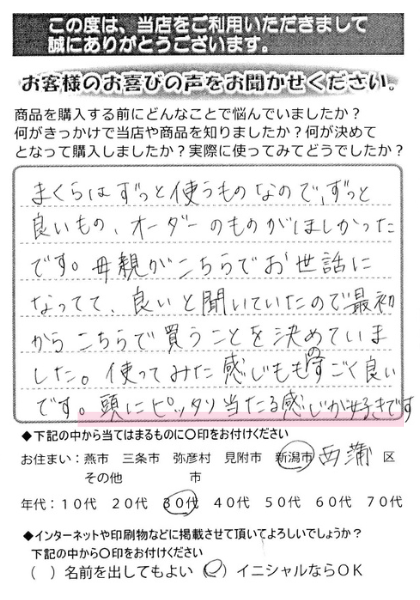 この度は、当店をご利用いただきまして
誠にありがとうございます。
お客様のお喜びの声をお聞かせください。
商品を購入する前にどんなことで悩んでいましたか？
何がきっかけで当店や商品を知りましたか？何が決めて
となって購入しましたか？実際に使ってみてどうでしたか？
まくらはずっと使うものなので、ずっと
良いもの、オーダーのものがほしかった
です。母親がこちらでお世話に
なってて、良いと聞いていたので最初
からこちらで買うことを決めていま
した。使ってみた感じもものすごく良い
です。頭にピッタリ当たる感じが好きです
◆下記の中から当てはまるものに○印をお付けください
お住まい：燕市 三条市 弥彦村 見附市 新潟市 西蒲 区
その他 市
年代：10代 20代 30代 40代 50代 60代 70代
◆インターネットや印刷物などに掲載させて頂いてよろしいでしょうか？
下記の中から○印をお付けください
( ) 名前を出してもよい (○) イニシャルならOK